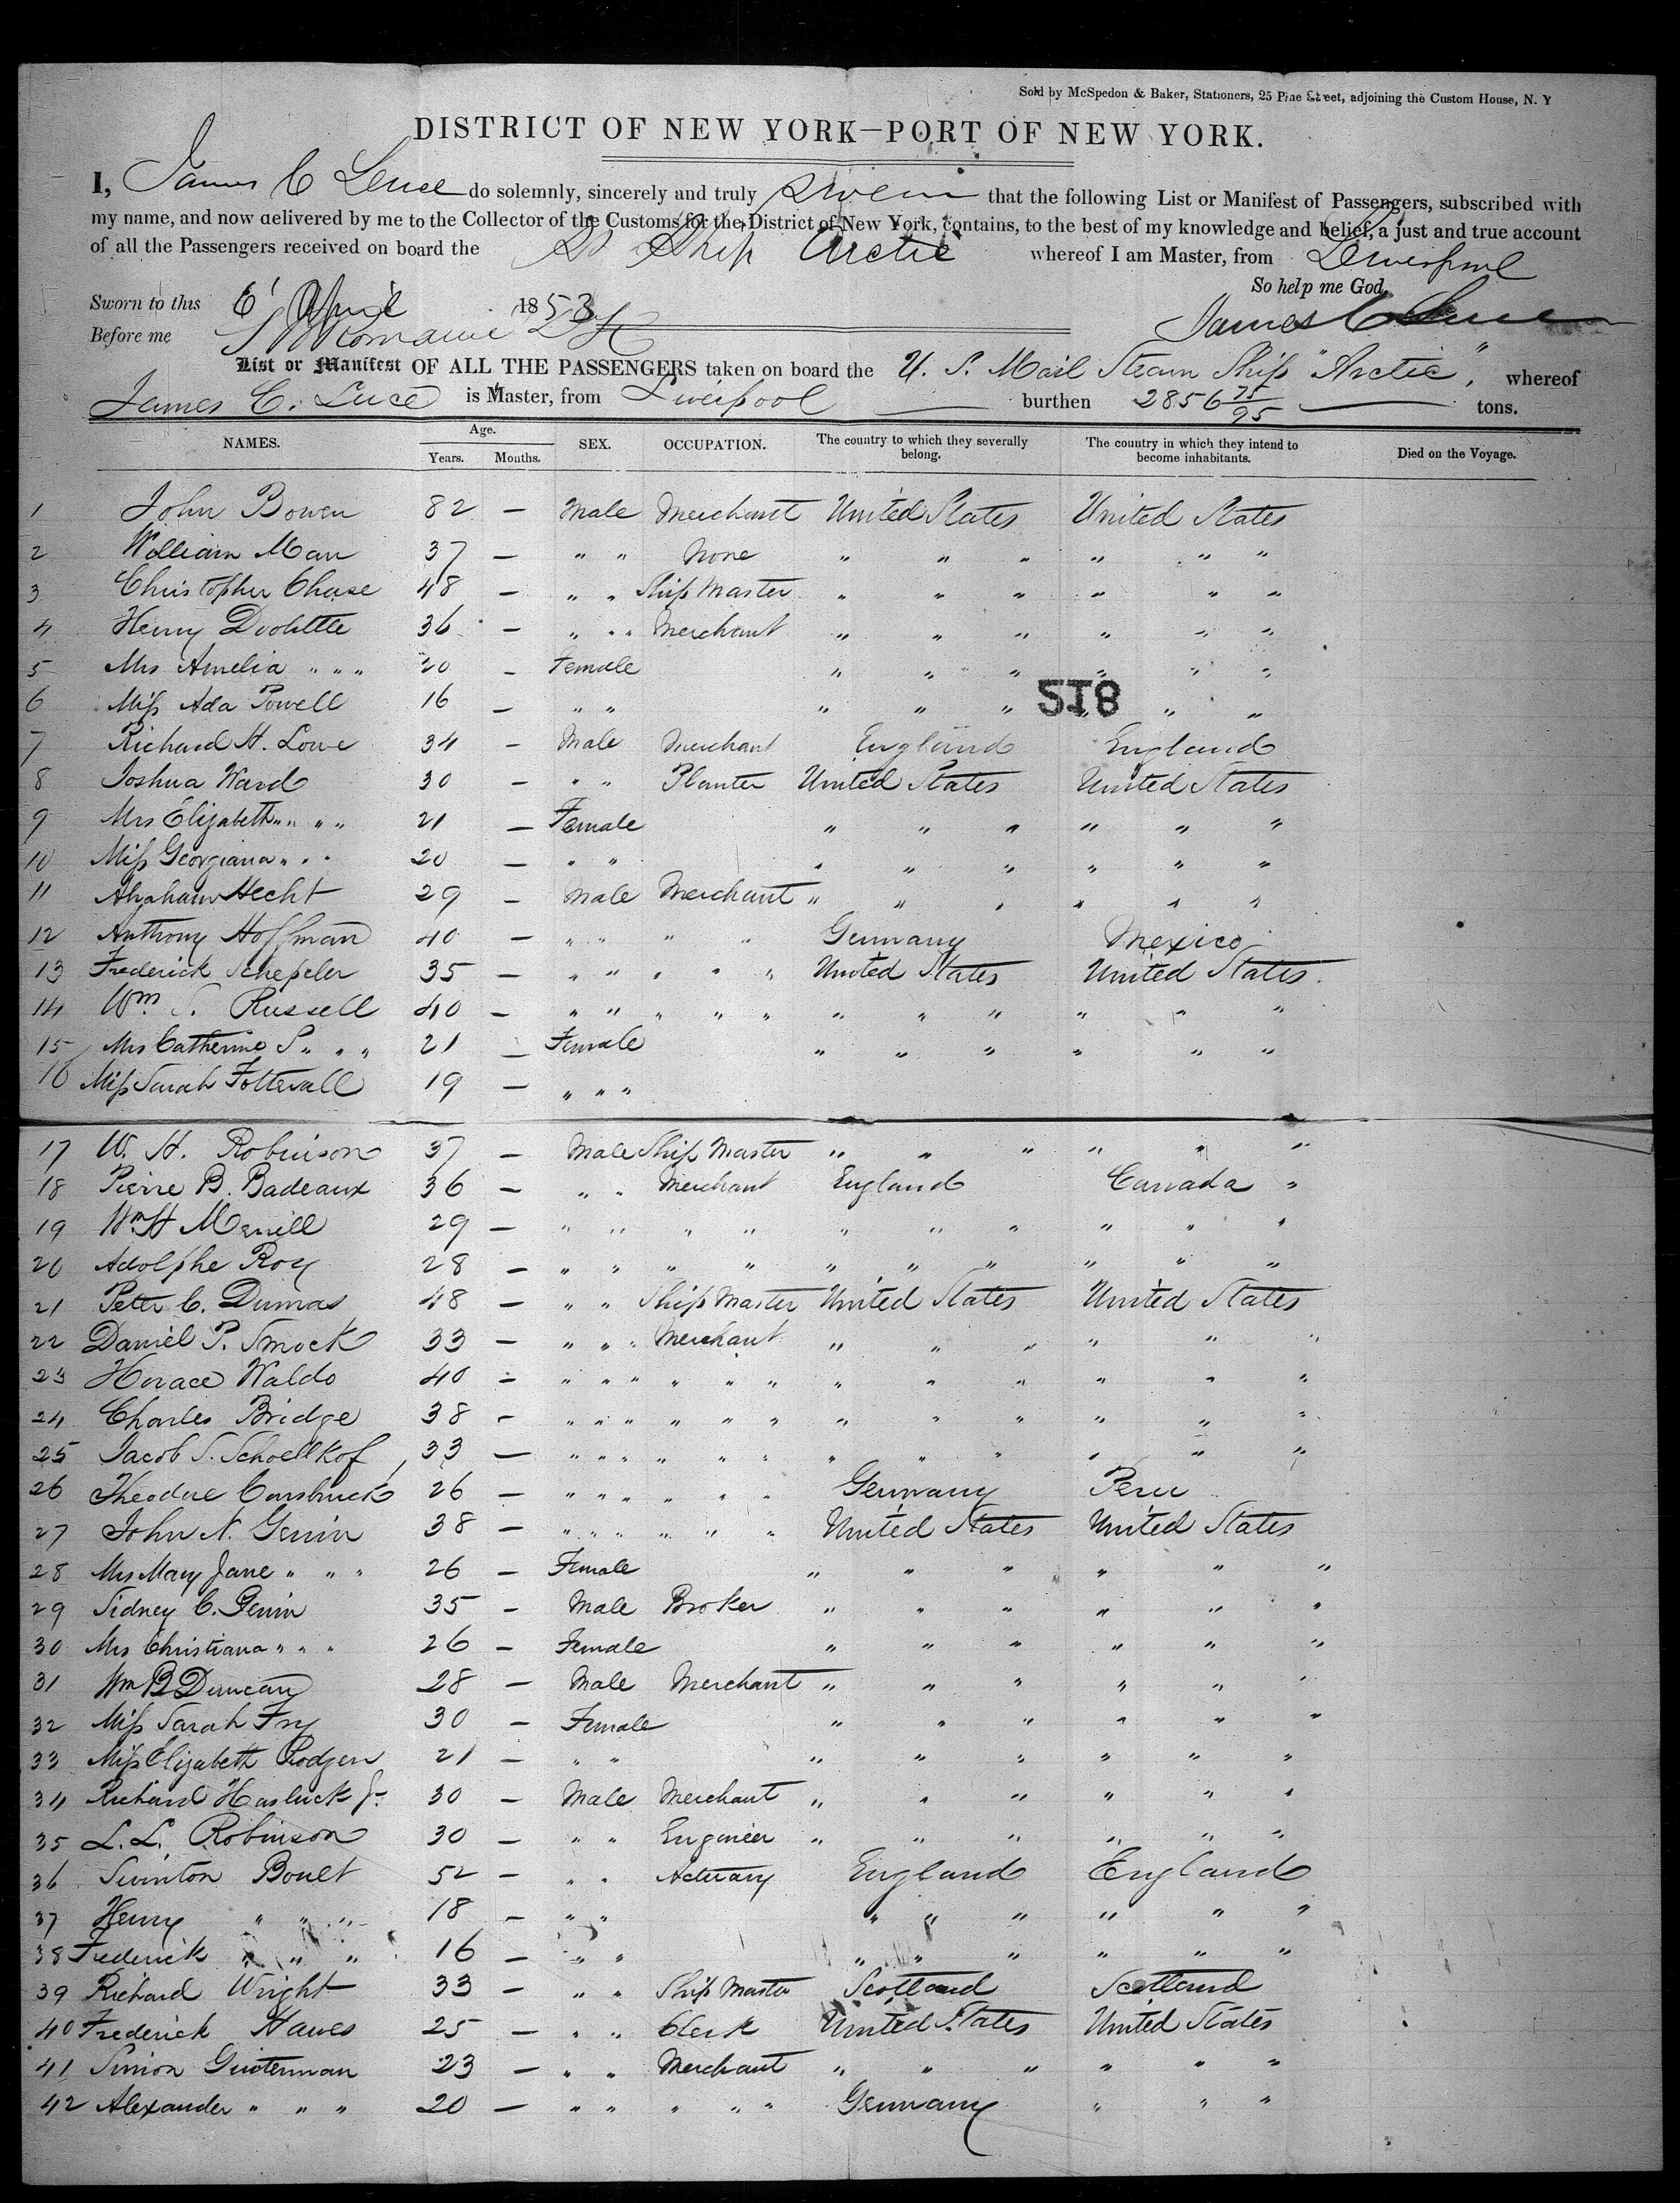 Sold by McSpedon & Baker, Stationers, 25 Pine Street, adjoining the Custom House, N. Y
DISTRICT OF NEW YORK—PORT OF NEW YORK.
I, James C Luce do solemnly, sincerely and truly swear that the following List or Manifest of Passengers, subscribed with
my name, and now delivered by me to the Collector of the Customs for the District of New York, contains, to the best of my knowledge and belief, a just and true account
of all the Passengers received on board the St Ship Arctic whereof I am Master, from Liverpool
So help me God,
Sworn to this 6' April 1853 James C Luce
Before me
List or Manifest OF ALL THE PASSENGERS taken on board the U. S. Mail Steam Ship "Arctic", whereof
James C. Luce is Master, from Liverpool burthen 2856 75/95 tons.
NAMES. Age. Years. Months. SEX. OCCUPATION. The country to which they severally belong. The country in which they intend to become inhabitants. Died on the Voyage.
1 John Bowen 82 — Male Merchant United States United States
2 William Man 37 — " " None " " " " " "
3 Christopher Chase 48 — " " Ship Master " " " " " "
4 Henry Doolittle 36 — " " " Merchant " " " " " "
5 Mrs Amelia " " " 20 — Female " " " " " "
6 Miss Ada Powell 16 — " " " " " " " "
518
7 Richard H. Lowe 34 — Male Merchant England England
8 Joshua Ward 30 — " " Planter United States United States
9 Mrs Elizabeth " " " " 21 — Female " " " " " "
10 Miss Georgiana " " " 20 — " " " " " " " "
11 Abraham Hecht 29 — Male Merchant " " " " " "
12 Anthony Hoffman 40 — " " " " Germany Mexico
13 Frederick Schepeler 35 — " " " " " United States United States.
14 Wm S. Russell 40 — " " " " " " " " " " "
15 Mrs Catherine S " " " 21 — Female " " " " " "
16 Miss Sarah Fottevall 19 — " " "
17 W. H. Robinson 37 — Male Ship Master " " " " " "
18 Pierre B. Badeaux 36 — " " Merchant England Canada "
19 Wm H Merrill 29 — " " " " " " " " " "
20 Adolphe Roy 28 — " " " " " " " " " "
21 Peter C. Dumas 48 — " " Ship Master United States United States
22 Daniel P. Smock 33 — " " " Merchant " " " " " "
23 Horace Waldo 40 — " " " " " " " " " " " "
24 Charles Bridge 38 — " " " " " " " " " " " "
25 Jacob S. Schoellkof 33 — " " " " " " " " " " " "
26 Theodore 26 — " " " " " " Germany Peru
27 John N. Genin 38 — " " " " " " United States United States
28 Mrs Mary Jane " " " 26 — Female " " " " " "
29 Sidney C. Genin 35 — Male Broker " " " " " "
30 Mrs Christiana " " " 26 — Female " " " " " "
31 Wm B Duncan 28 — Male Merchant " " " " " "
32 Miss Sarah Fry 30 — Female " " " " " "
33 Miss Elizabeth Rodgers 21 — " " " " " " " "
34 Richard Hasluck Jr. 30 — Male Merchant " " " " " "
35 L. L. Robinson 30 — " " Engineer " " " " " "
36 Swinton Boult 52 — " " Actuary England England
37 Henry " " " 18 — " " " " " " " "
38 Frederick " " " 16 — " " " " " " " "
39 Richard Wright 33 — " " Ship Master Scotland Scotland
40 Frederick Hawes 25 — " " Clerk United States United States
41 Simon Guiterman 23 — " " Merchant " " " " " "
42 Alexander " " " 20 — " " " " " Germany " " "